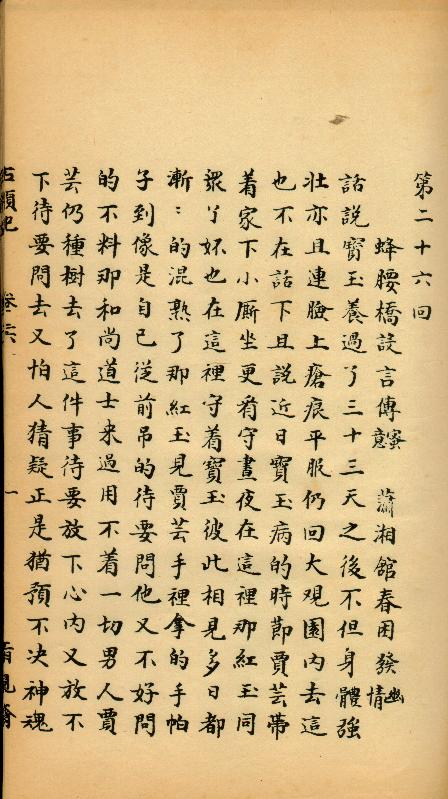 第二十六回
蜂腰橋設言傳蜜意　蕭湘館春困發幽情
話說寶玉養過了三十三天之後不但身體強
壯亦且連臉上瘡痕平服仍回大观園內去這
也不在話下且說近日寶玉病的時節賈芸帶
着家下小厮坐更看守晝夜在這裡那紅玉同
衆丫嬛也在這裡守着寶玉彼此相見多日都
漸〻的混熟了那紅玉見賈芸手裡拿的手帕
子到像是自己從前吊的待要問他又不好問
的不料那和尚道士来過用不着一切男人賈
芸仍種樹去了這件事待要放下心內又放不
下待要問去又怕人猜疑正是猶預不决神魂
石頭記　卷二六　一